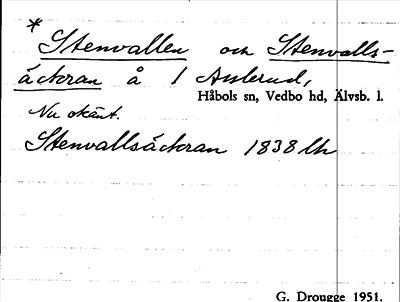 * Stenvallen och Stenvalls-
äckran å 1 Anlerud,
Håbols sn, Vedbo hd, Älvsb. l.
Nu okänt.
Stenvallsäckran 1838 lh
G. Drougge 1951.